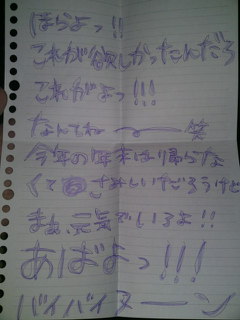 ほらよっ!!
これが欲しかったんだろ
これがよっ!!!
なんてねーー笑
今年の年末は帰らな
くてさみしいだろうけど
まぁ、元気でいろよ!!
あばよっ!!!
バイバイヌーーン